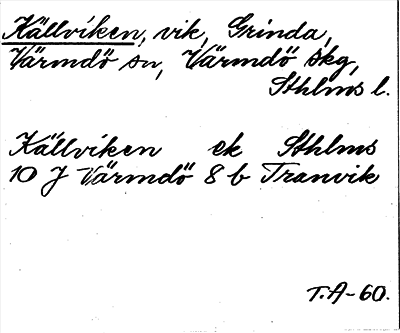 Källviken, vik, Grinda,
Värmdö sn, Värmdö skg,
Sthlms l.
Källviken ek Sthlms
10 J Värmdö 8 b Tranvik
T.A-60.